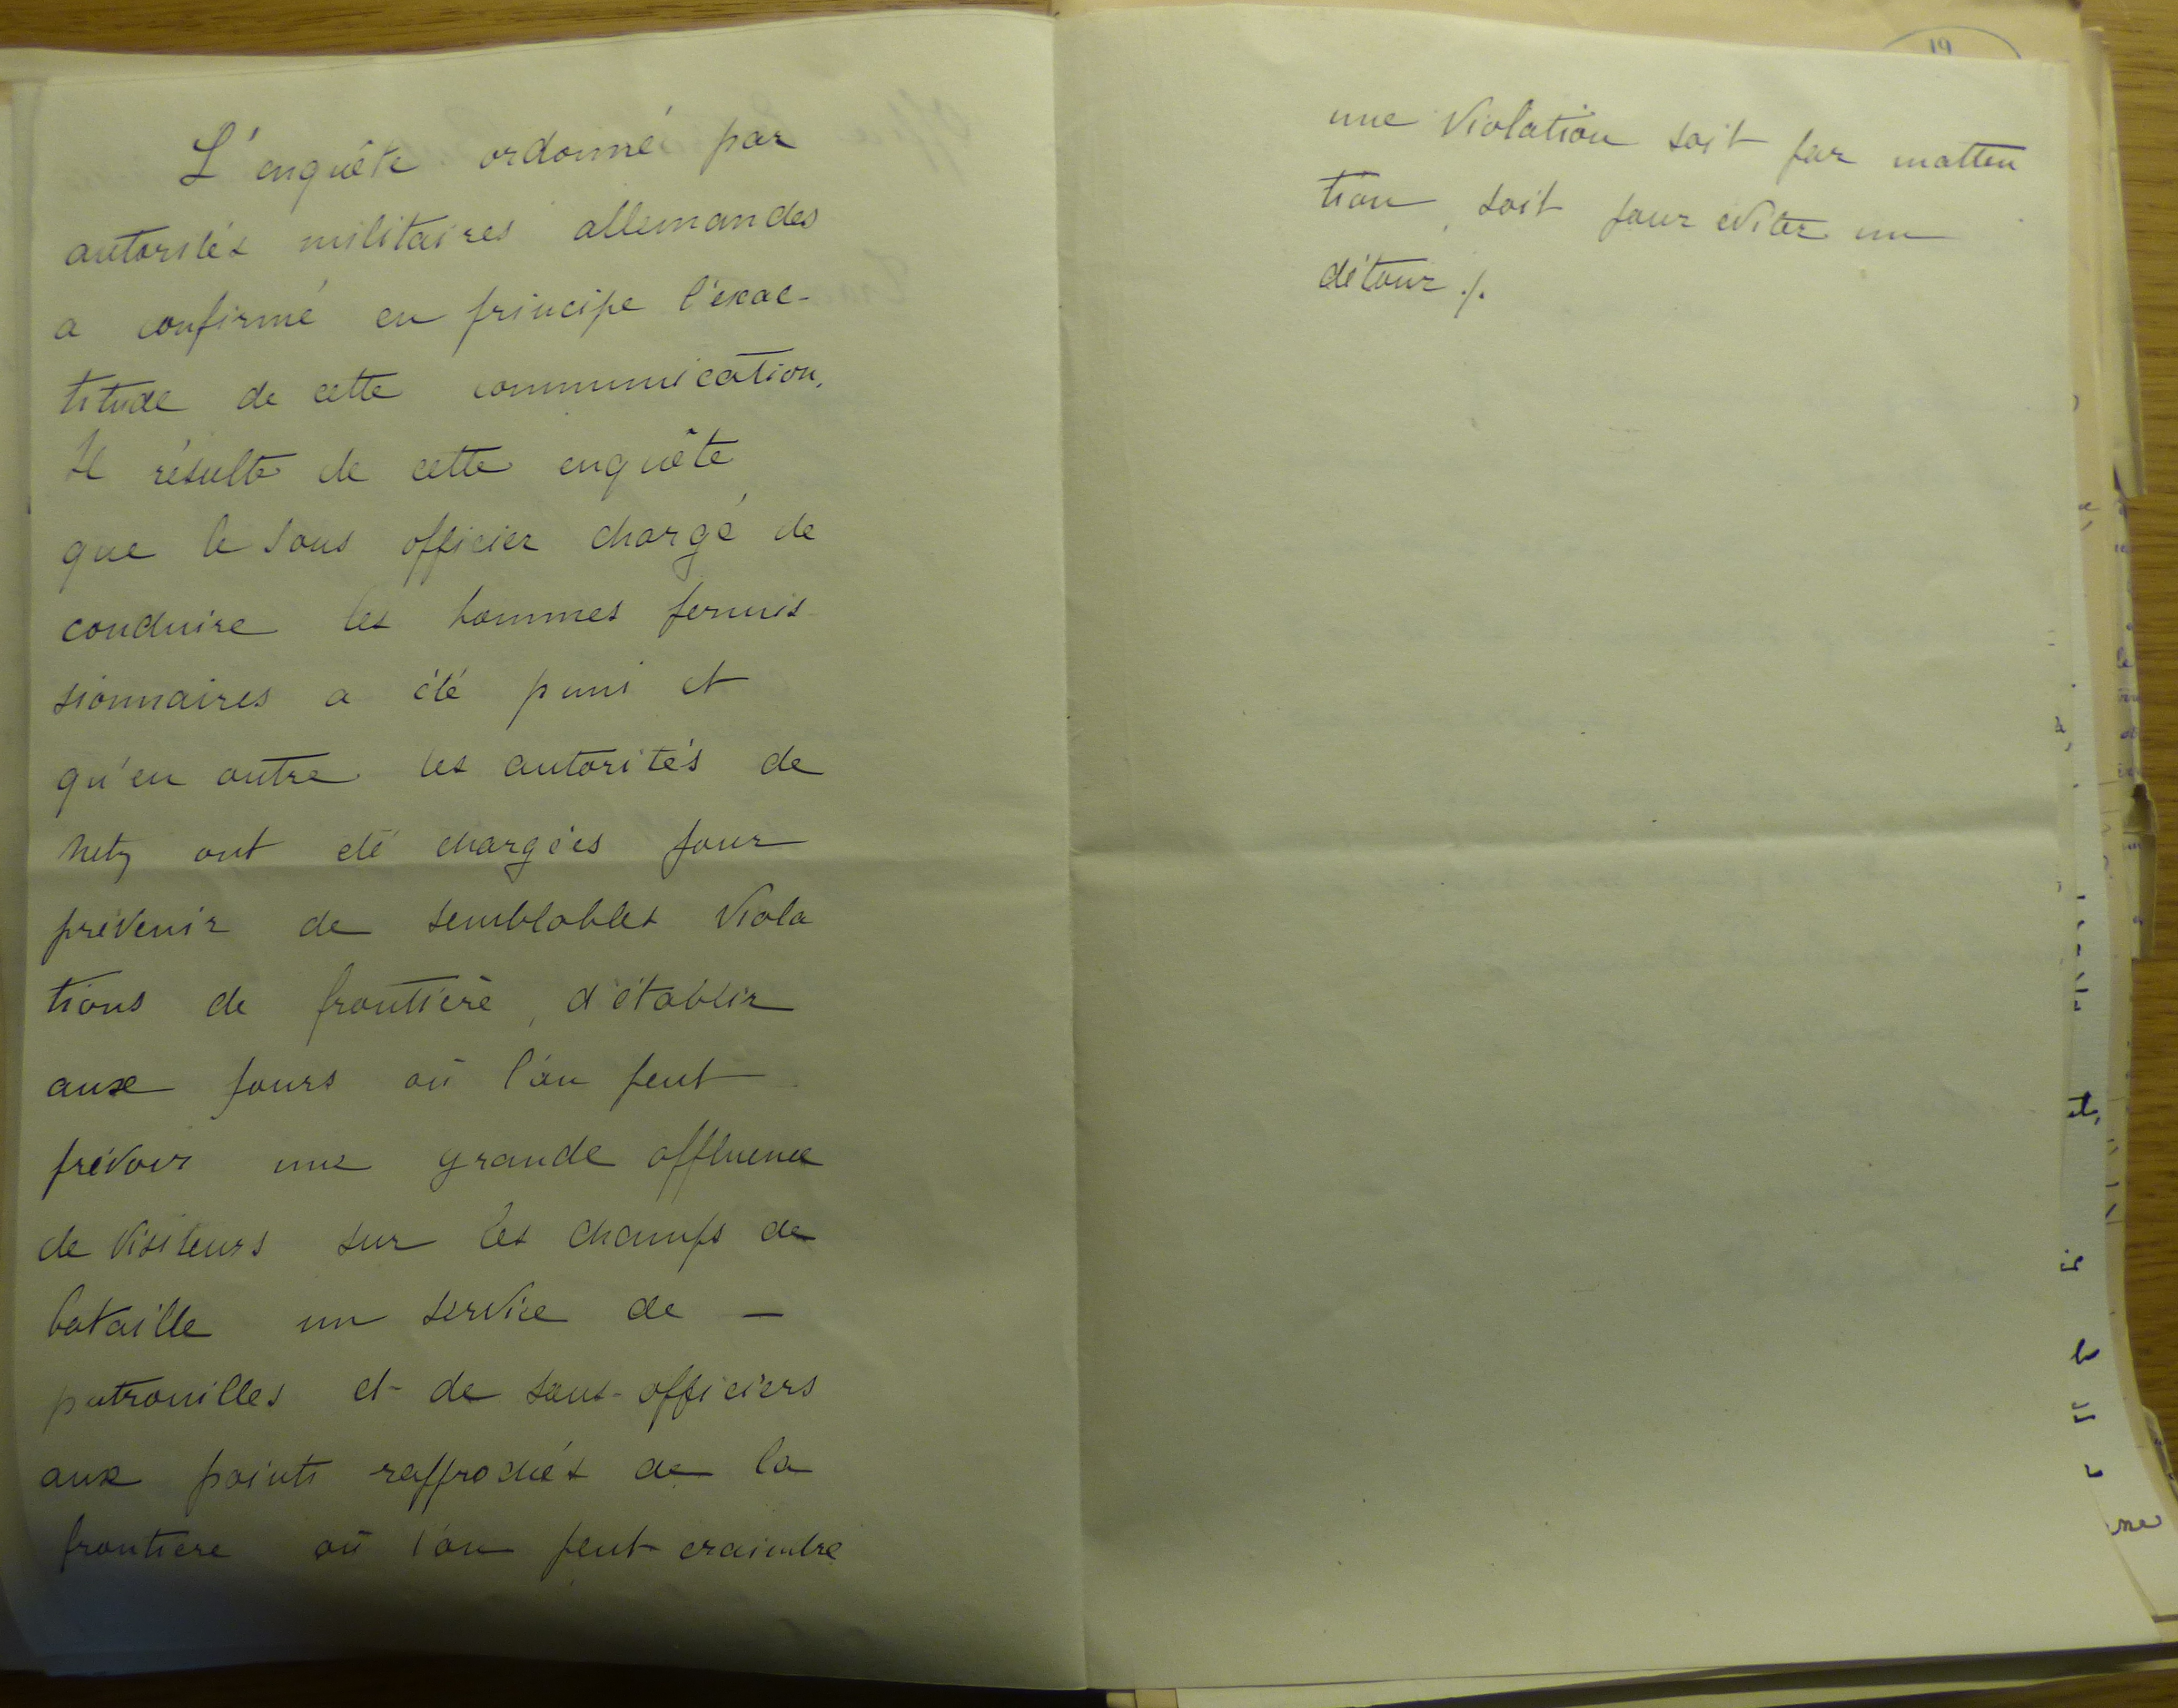 L'enquête ordonné par
autorités militaires allemandes
a confirmé en principe l'exac-
titude de cette communication.
Il résulte de cette enquête
que le sous officier chargé de
conduire les hommes permis
sionnaires a été puni et
qu'en outre les autorités de
Metz ont été chargées pour
prévenir de semblables viola
tions de frontière, d'établir
aux jours où l'on peut
prévoir une grande affluence
de visiteurs sur les champs de
bataille un service de –
patrouilles et de sous-officiers
aux points rapprochés de la
frontière où l'on peut craindre
une violation soit par inatten
tion, soit pour éviter un
détour ./.
19